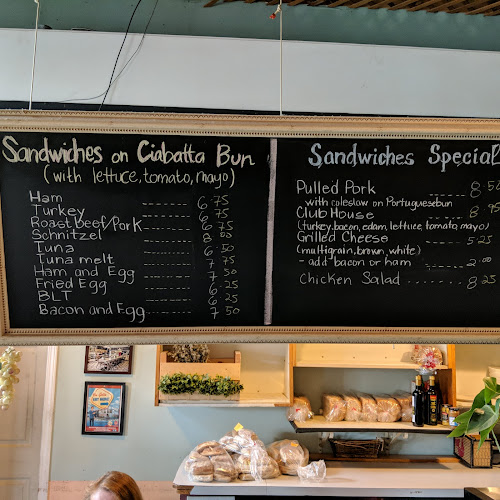 Sandwiches on Ciabatta Bun
(with lettuce, tomato, mayo)
Ham 6.75
Turkey 6.75
Roast Beef/Pork
Schnitzel
Tuna 6.50
Tuna melt 7.75
Ham and Egg 7.50
Fried Egg 6.25
BLT 6.25
Bacon and Egg 7.50
Sandwiches Special
Pulled Pork 8.50
with coleslaw on Portuguese bun
Club House 8.95
(turkey, bacon, edam, lettuce, tomato, mayo)
Grilled Cheese 5.25
(multigrain, brown, white)
- add bacon or ham 2.00
Chicken Salad ....... 8.25